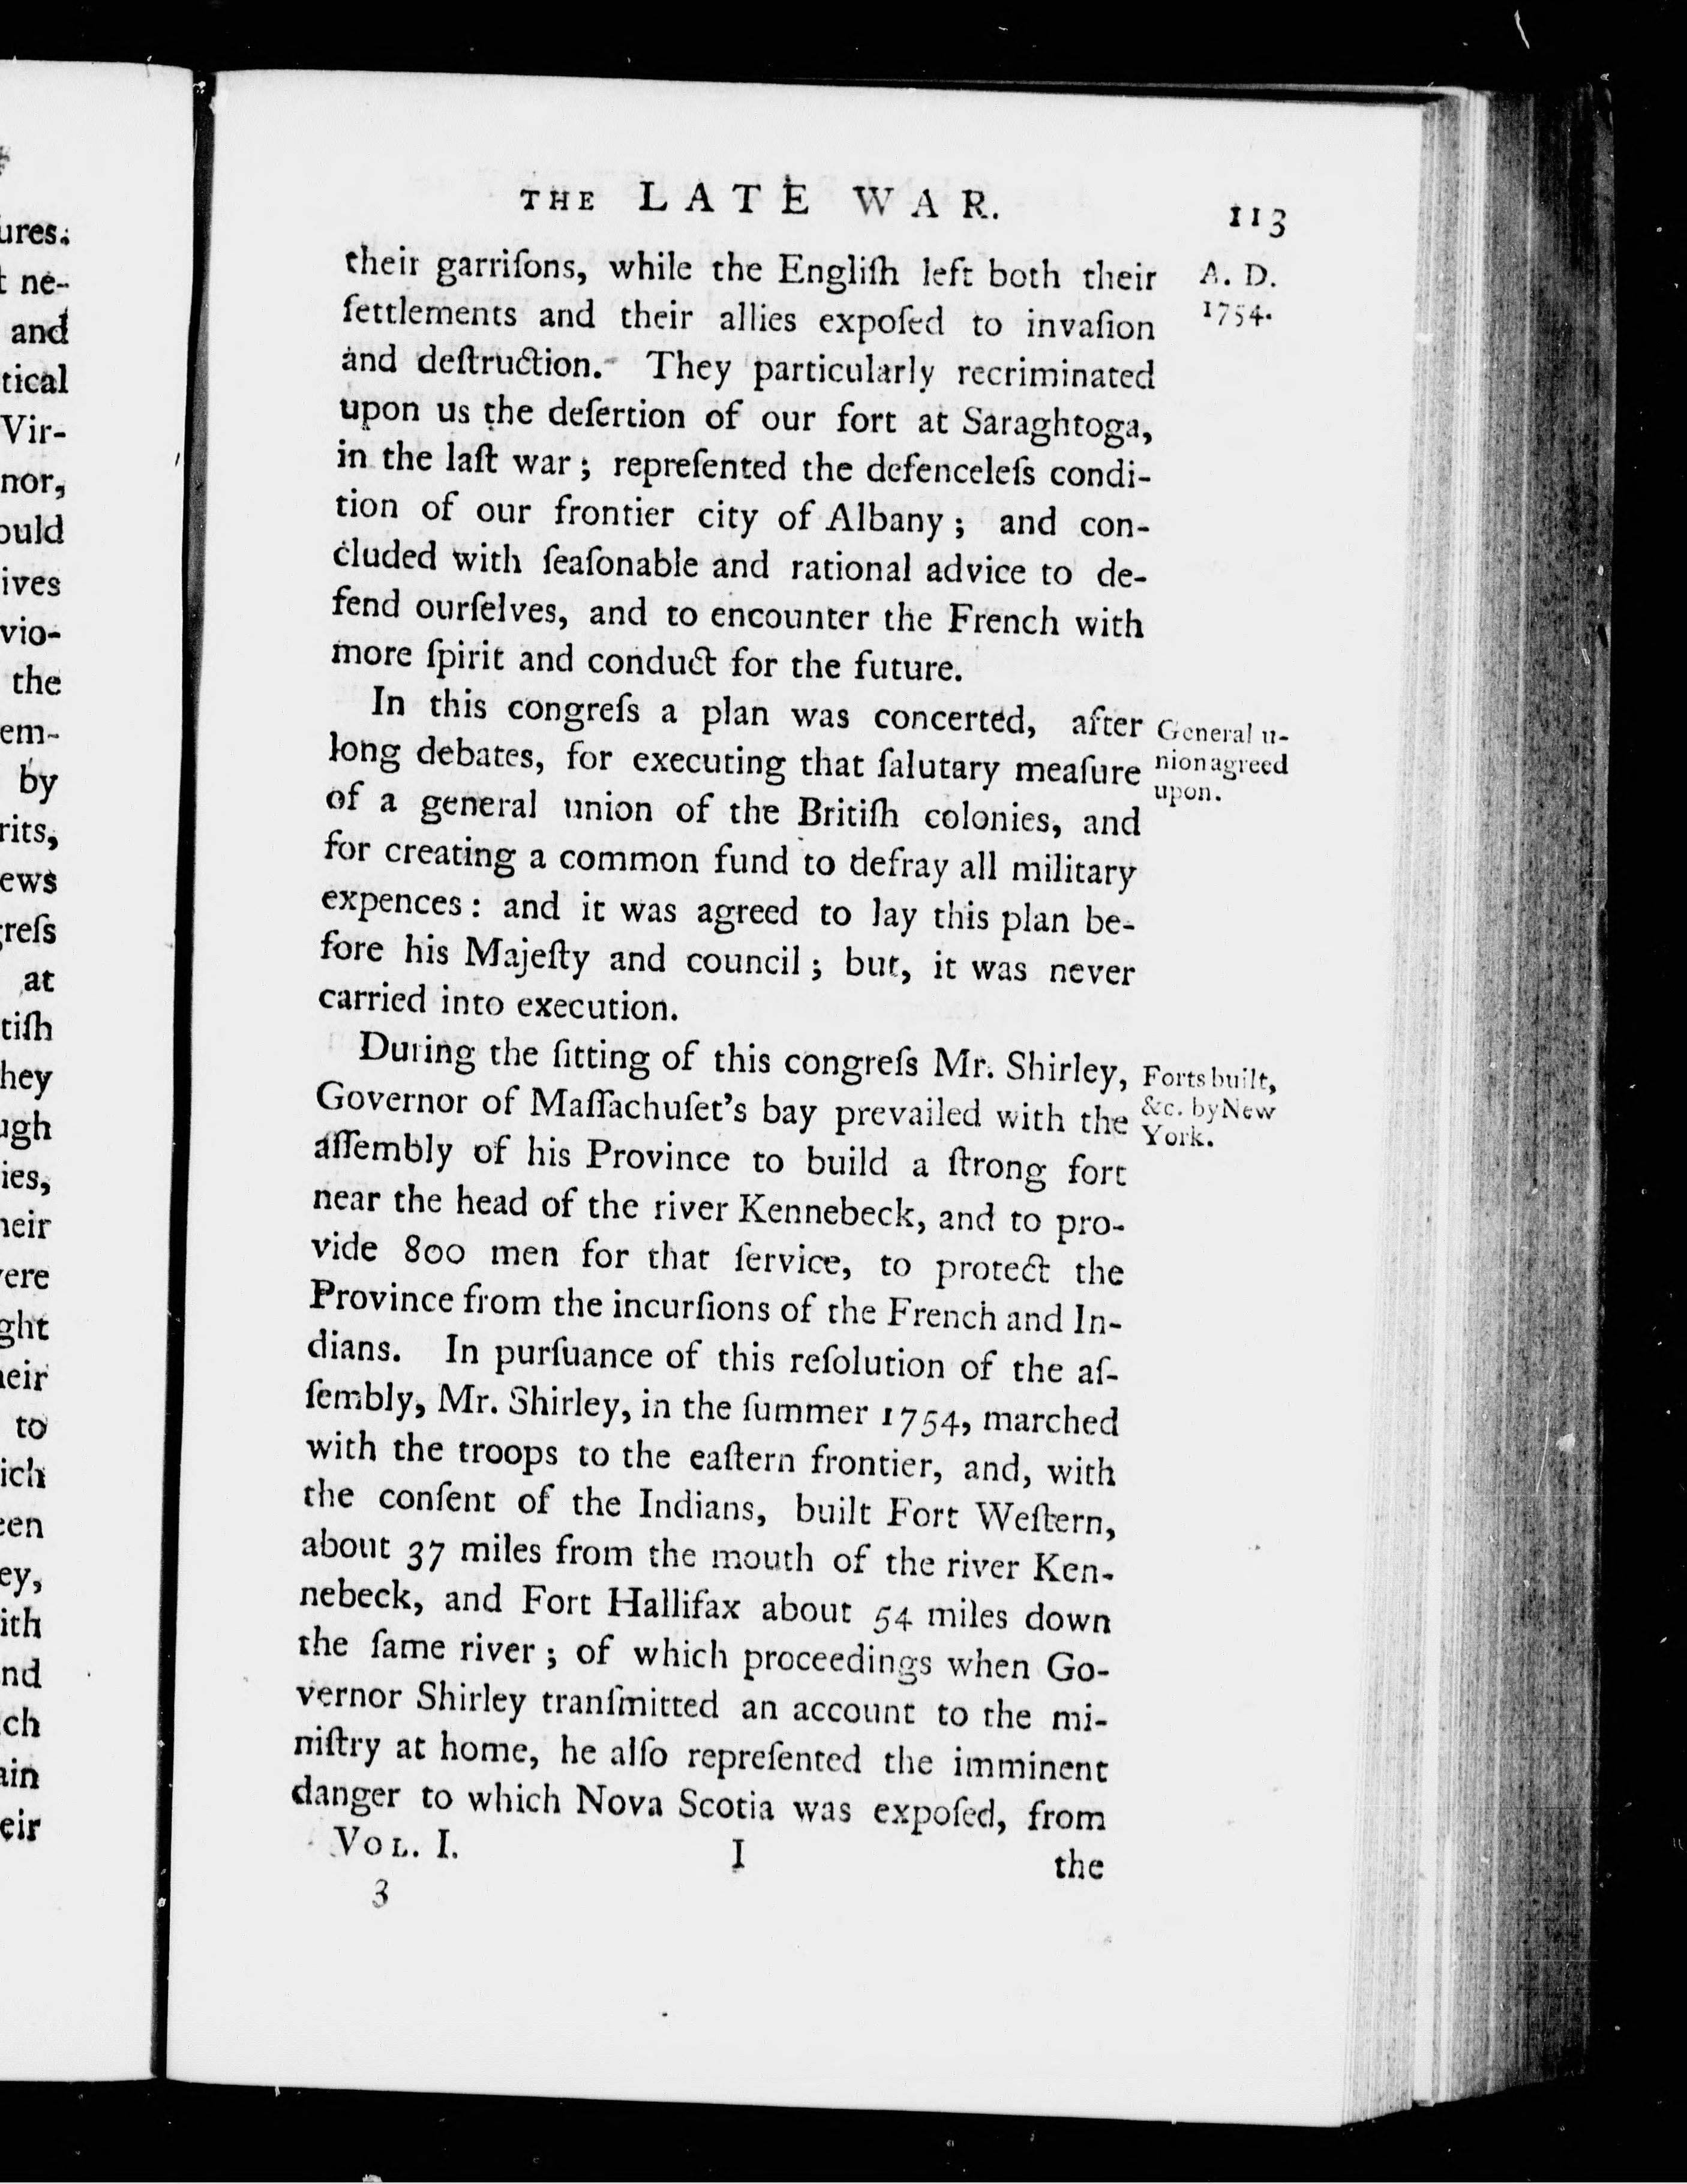 ures.
t ne-
and
tical
Vir-
nor,
ould
ives
vio-
the
em-
by
rits,
ews
greſs
at
tiſh
hey
ugh
ies,
heir
vere
ght
heir
to
ich
een
ey,
ith
nd
ch
ain
eir
THE LATE WAR.
113
their garriſons, while the Engliſh left both their
A. D.
ſettlements and their allies expoſed to invaſion
1754.
and deſtruction. They particularly recriminated
upon us the deſertion of our fort at Saraghtoga,
in the laſt war; repreſented the defenceleſs condi-
tion of our frontier city of Albany; and con-
cluded with ſeaſonable and rational advice to de-
fend ourſelves, and to encounter the French with
more ſpirit and conduct for the future.
In this congreſs a plan was concerted, after
General u-
long debates, for executing that ſalutary meaſure
nion agreed
of a general union of the Britiſh colonies, and
upon.
for creating a common fund to defray all military
expences: and it was agreed to lay this plan be-
fore his Majeſty and council; but, it was never
carried into execution.
During the ſitting of this congreſs Mr. Shirley,
Forts built,
Governor of Maſſachuſet's bay prevailed with the
&c. by New
aſſembly of his Province to build a ſtrong fort
York.
near the head of the river Kennebeck, and to pro-
vide 800 men for that ſervice, to protect the
Province from the incurſions of the French and In-
dians. In purſuance of this reſolution of the aſ-
ſembly, Mr. Shirley, in the ſummer 1754, marched
with the troops to the eaſtern frontier, and, with
the conſent of the Indians, built Fort Weſtern,
about 37 miles from the mouth of the river Ken-
nebeck, and Fort Hallifax about 54 miles down
the ſame river; of which proceedings when Go-
vernor Shirley tranſmitted an account to the mi-
niſtry at home, he alſo repreſented the imminent
danger to which Nova Scotia was expoſed, from
VOL. I.
I
the
3